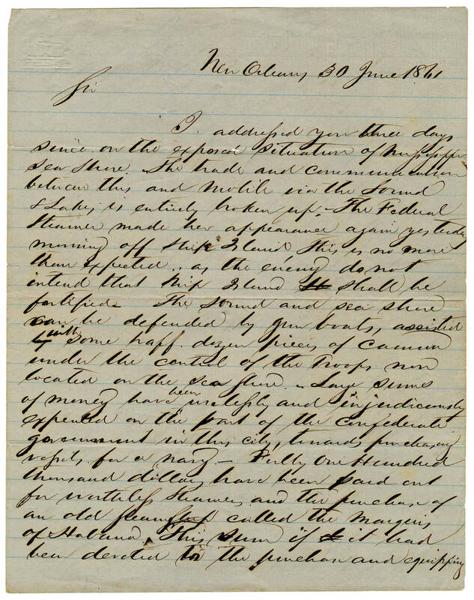 New Orleans 30 June 1861
Sir
I addressed you three days
since on the exposed situation of Mississippi
sea shore. The trade and communication
between this and Mobile via the Sound
& Lakes, is entirely broken up. The Federal
Steamer made her appearance again yesterday
morning off Ship Island. This is no more
than expected, as the enemy do not
intend that Ship Island shall be
fortified. The sound and sea shore
can be defended by gun boats, assisted
with some half dozen pieces of cannon
under the control of the Troops now
located on the sea shore. Large sums
of money have been uselessly and injudiciously
expended on the part of the Confederate
government in this city, towards purchasing
vessels for a navy – Fully One Hundred
thousand dollars have been paid out
for worthless steamers and the purchase of
an old called the Marquis
of Habana. This sum if it had
been devoted to the purchase and equipping